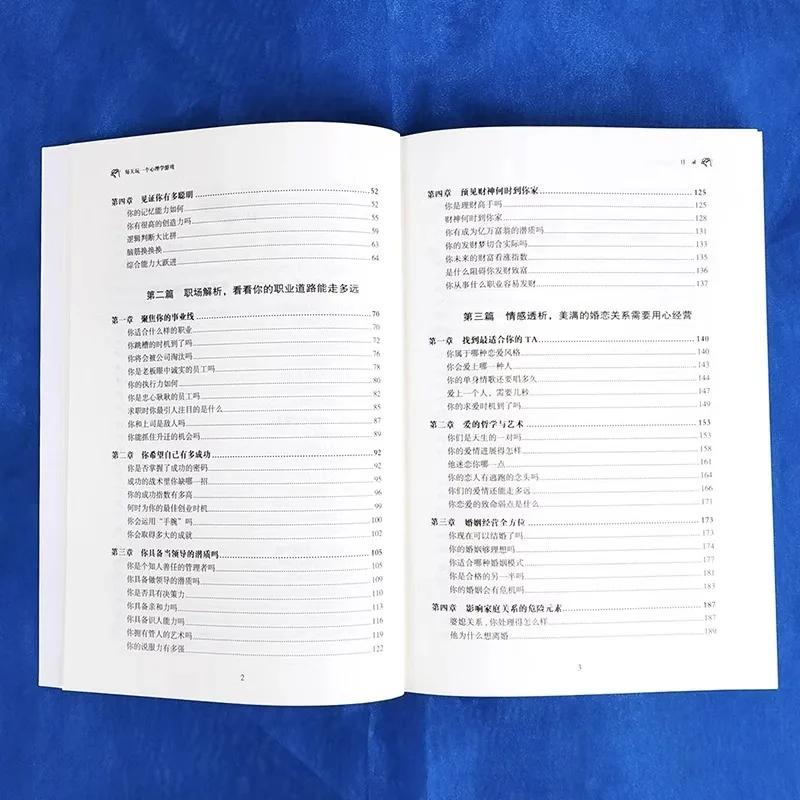 每天玩一个心理学游戏
第四章 见证你有多聪明 52
你的记忆能力如何 52
你有很高的创造力吗 55
逻辑判断大比拼 59
脑筋换换换 63
综合能力大跃进 64
第二篇 职场解析，看看你的职业道路能走多远
第一章 聚焦你的事业线 70
你适合什么样的职业 70
你跳槽的时机到了吗 72
你将会被公司淘汰吗 76
你是老板眼中诚实的员工吗 78
你的执行力如何 80
你是忠心耿耿的员工吗 82
求职时你最引人注目的是什么 85
你和上司是敌人吗 87
你能抓住升迁的机会吗 89
第二章 你希望自己有多成功 92
你是否掌握了成功的密码 92
成功的战术里你缺哪一招 95
你的成功指数有多高 96
何时为你的最佳创业时机 99
你会运用“手腕”吗 100
你会取得多大的成就 102
第三章 你具备当领导的潜质吗 105
你是个知人善任的管理者吗 105
你具备做领导的潜质吗 109
你是否具有决策力 110
你具备亲和力吗 113
你具备识人能力吗 116
你拥有管人的艺术吗 119
你的说服力有多强 122
2
目 录
第四章 预见财神何时到你家 125
你是理财高手吗 125
财神何时到你家 128
你有成为亿万富翁的潜质吗 131
你的发财梦切合实际吗 133
你未来的财富看涨指数 135
是什么阻碍你发财致富 136
你从事什么职业容易发财 137
第三篇 情感透析，美满的婚恋关系需要用心经营
第一章 找到最适合你的TA 140
你属于哪种恋爱风格 140
你会爱上哪一种人 143
你的单身情歌还要唱多久 144
爱上一个人，需要几秒 147
你的求爱时机到了吗 149
第二章 爱的哲学与艺术 153
你们是天生的一对吗 153
你的爱情进展得怎样 158
他迷恋你哪一点 161
你的恋人有逃跑的念头吗 164
你们的爱情还能走多远 166
你恋爱的致命弱点是什么 171
第三章 婚姻经营全方位 173
你现在可以结婚了吗 173
你的婚姻够理想吗 174
你适合哪种婚姻模式 177
你是合格的另一半吗 181
你的婚姻会有危机吗 183
第四章 影响家庭关系的危险元素 187
婆媳关系，你处理得怎么样 187
他为什么想离婚 189
3